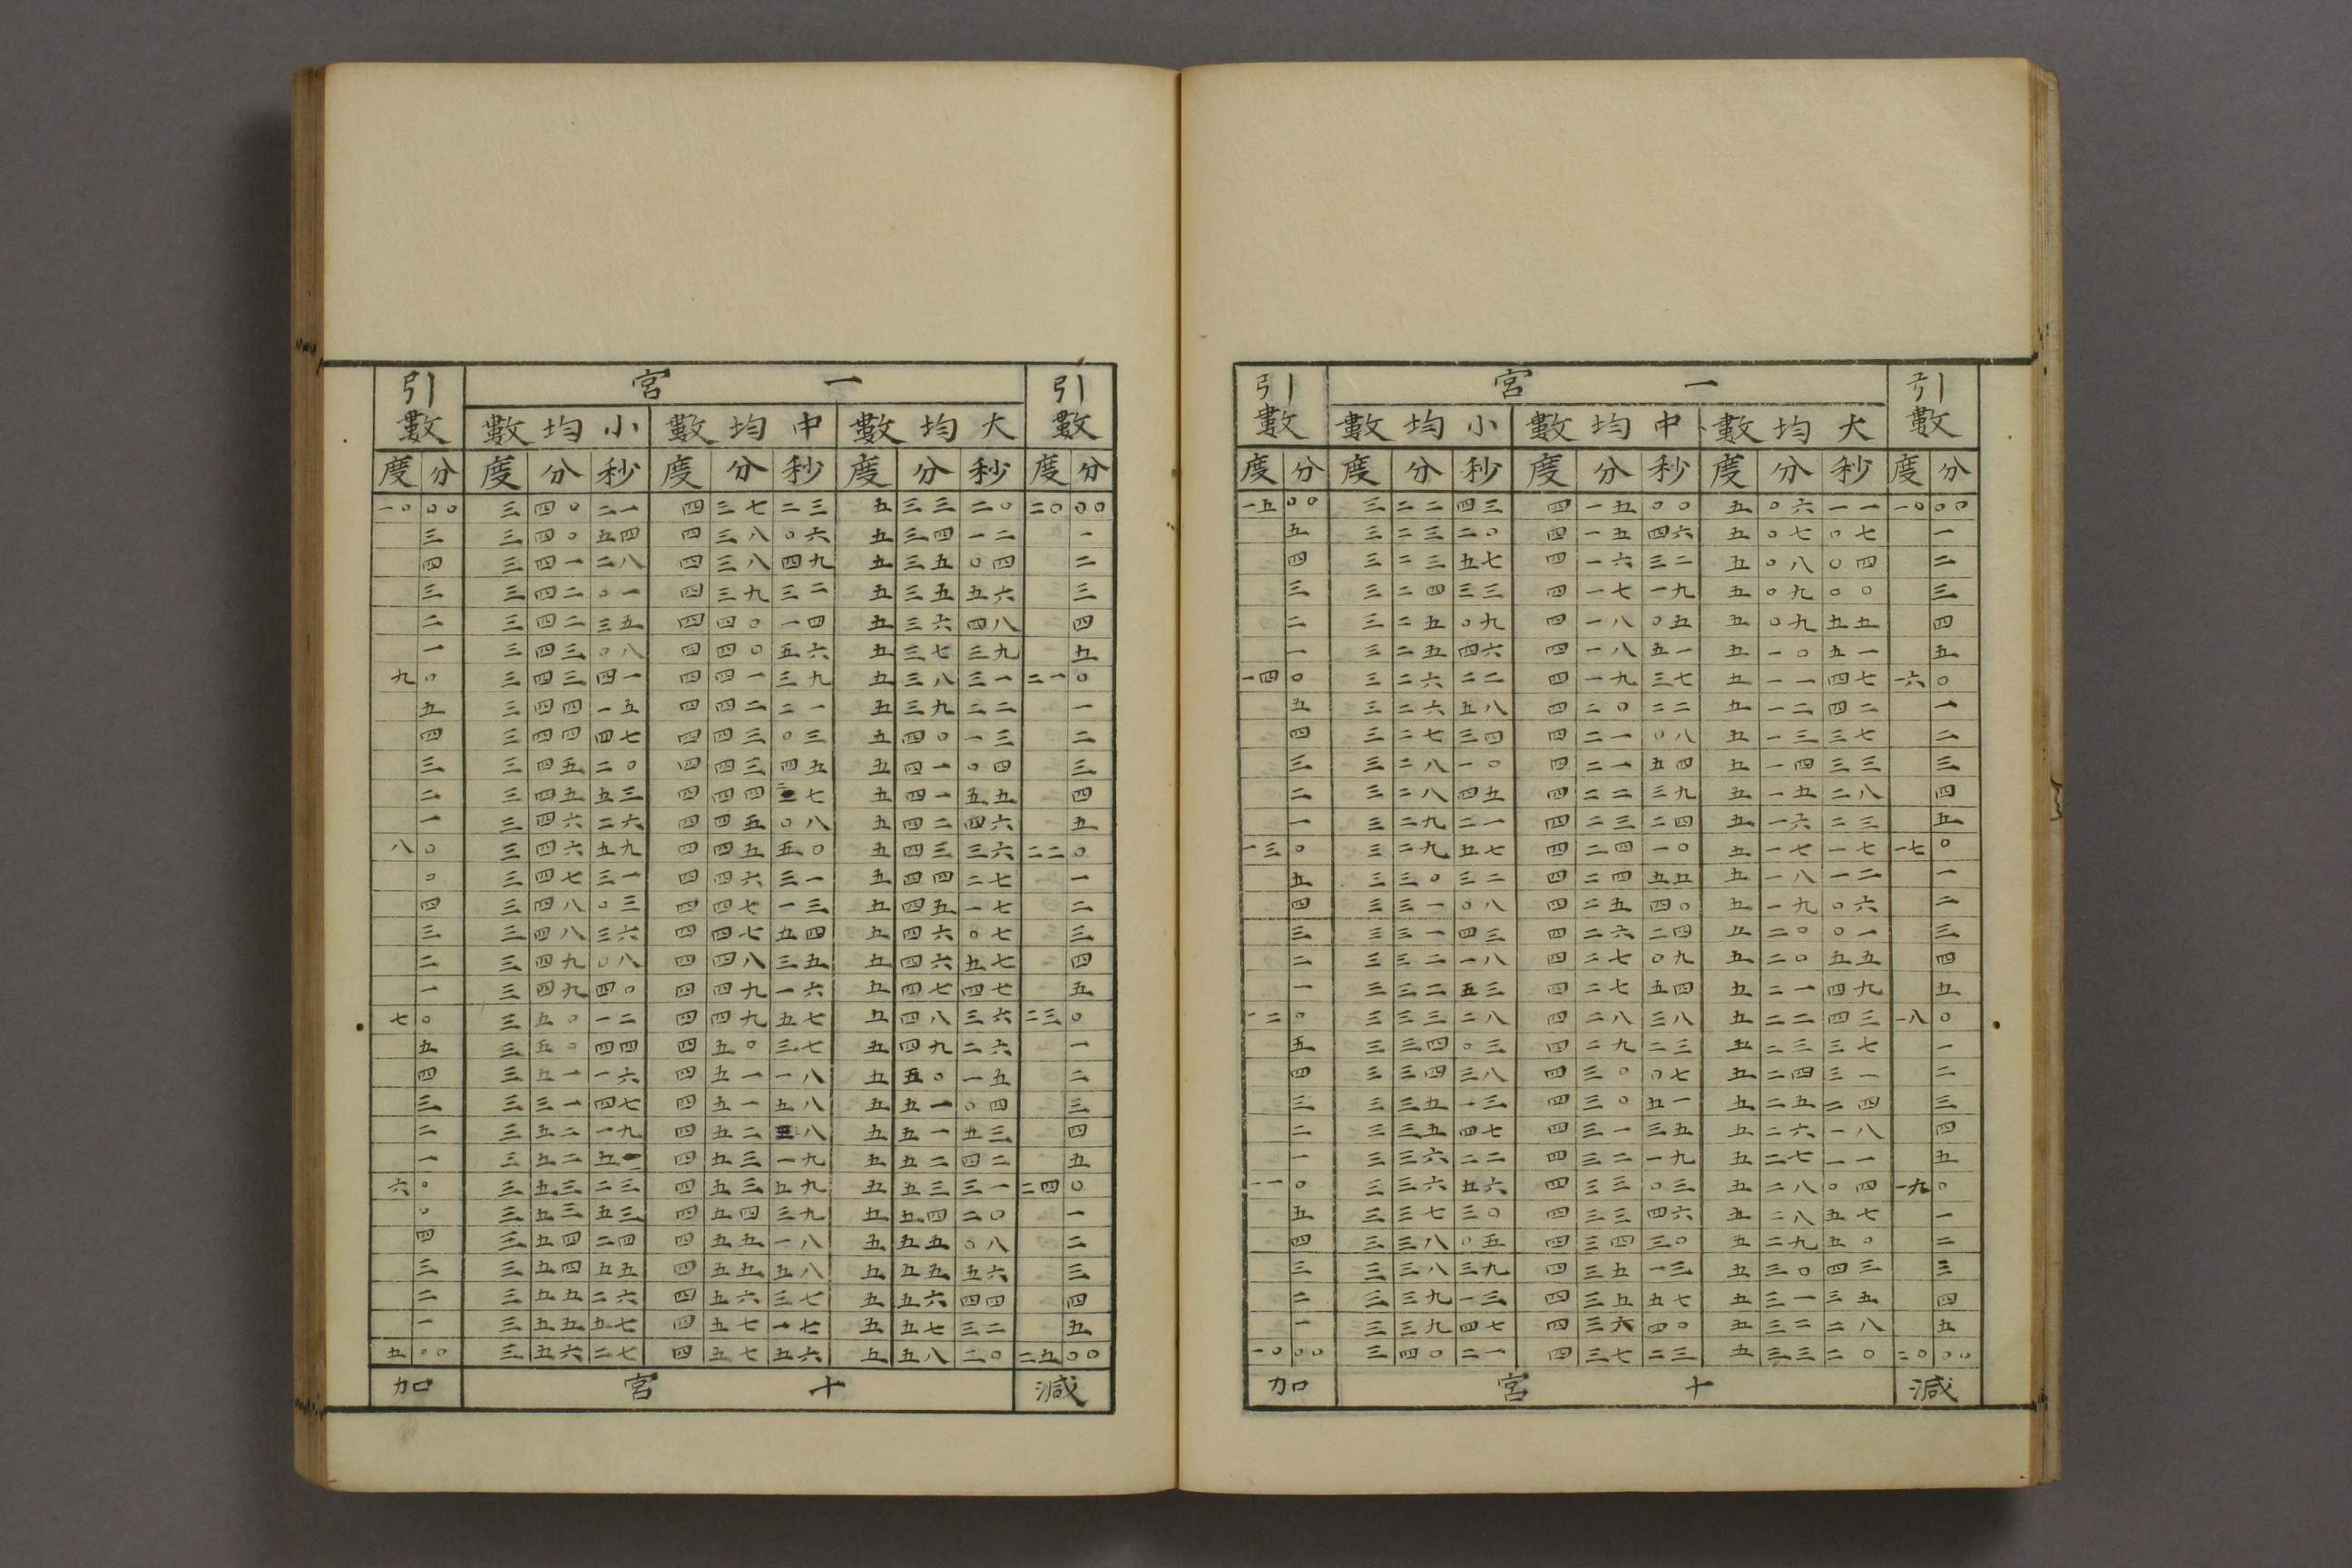 引數 一宮 引數
大均數 中均數 小均數
度 分 度 分 秒 度 分 秒 度 分 秒 度 分
一五 〇〇 三 二二 四三 四 一五 〇〇 五 〇六 一一 一〇 〇〇
五 三 二三 二〇 四 一五 四六 五 〇七 〇七 一
四 三 二三 五七 四 一六 三二 五 〇八 〇四 二
三 三 二四 三三 四 一七 一九 五 〇九 〇〇 三
二 三 二五 〇九 四 一八 〇五 五 〇九 五五 四
一 三 二五 四六 四 一八 五一 五 一〇 五一 五
一四 〇 三 二六 二二 四 一九 三七 五 一一 四七 一六 〇
五 三 二六 五八 四 二〇 二二 五 一二 四二 一
四 三 二七 三四 四 二一 〇八 五 一三 三七 二
三 三 二八 一〇 四 二一 五四 五 一四 三三 三
二 三 二八 四五 四 二二 三九 五 一五 二八 四
一 三 二九 二一 四 二三 二四 五 一六 二三 五
一三 〇 三 二九 五七 四 二四 一〇 五 一七 一七 一七 〇
五 三 三〇 三二 四 二四 五五 五 一八 一二 一
四 三 三一 〇八 四 二五 四〇 五 一九 〇六 二
三 三 三一 四三 四 二六 二四 五 二〇 〇一 三
二 三 三二 一八 四 二七 〇九 五 二〇 五五 四
一 三 三二 五三 四 二七 五四 五 二一 四九 五
一二 〇 三 三三 二八 四 二八 三八 五 二二 四三 一八 〇
五 三 三四 〇三 四 二九 二三 五 二三 三七 一
四 三 三四 三八 四 三〇 〇七 五 二四 三一 二
三 三 三五 一三 四 三〇 五一 五 二五 二四 三
二 三 三五 四七 四 三一 三五 五 二六 一八 四
一 三 三六 二二 四 三二 一九 五 二七 一一 五
一一 〇 三 三六 五六 四 三三 〇三 五 二八 〇四 一九 〇
五 三 三七 三〇 四 三三 四六 五 二八 五七 一
四 三 三八 〇五 四 三四 三〇 五 二九 五〇 二
三 三 三八 三九 四 三五 一三 五 三〇 四三 三
二 三 三九 一三 四 三五 五七 五 三一 三五 四
一 三 三九 四七 四 三六 四〇 五 三二 二八 五
一〇 〇〇 三 四〇 二一 四 三七 二三 五 三三 二〇 二〇 〇〇
加 十宮 減
引數 一宮 引數
大均數 中均數 小均數
度 分 度 分 秒 度 分 秒 度 分 秒 度 分
一〇 〇〇 三 四〇 二一 四 三七 二三 五 三三 二〇 二〇 〇〇
三 三 四〇 五四 四 三八 〇六 五 三四 一二 一
四 三 四一 二八 四 三八 四九 五 三五 〇四 二
三 三 四二 〇一 四 三九 三二 五 三五 五六 三
二 三 四二 三五 四 四〇 一四 五 三六 四八 四
一 三 四三 〇八 四 四〇 五六 五 三七 三九 五
九 〇 三 四三 四一 四 四一 三九 五 三八 三一 二一 〇
五 三 四四 一五 四 四二 二一 五 三九 二二 一
四 三 四四 四七 四 四三 〇三 五 四〇 一三 二
三 三 四五 二〇 四 四三 四五 五 四一 〇四 三
二 三 四五 五三 四 四四 二七 五 四一 五五 四
一 三 四六 二六 四 四五 〇八 五 四二 四六 五
八 〇 三 四六 五九 四 四五 五〇 五 四三 三六 二二 〇
〇 三 四七 三一 四 四六 三一 五 四四 二七 一
四 三 四八 〇三 四 四七 一三 五 四五 一七 二
三 三 四八 三六 四 四七 五四 五 四六 〇七 三
二 三 四九 〇八 四 四八 三五 五 四六 五七 四
一 三 四九 四〇 四 四九 一六 五 四七 四七 五
七 〇 三 五〇 一二 四 四九 五七 五 四八 三六 二三 〇
五 三 五〇 四四 四 五〇 三七 五 四九 二六 一
四 三 五一 一六 四 五一 一八 五 五〇 一五 二
三 三 三一 四七 四 五一 五八 五 五一 〇四 三
二 三 五二 一九 四 五二 八 五 五一 五三 四
一 三 五二 五 四 五三 一九 五 五二 四二 五
六 〇 三 五三 二三 四 五三 五九 五 五三 三一 二四 〇
〇 三 五三 五三 四 五四 三九 五 五四 二〇 一
四 三 五四 二四 四 五五 一八 五 五五 〇八 二
三 三 五四 五五 四 五五 五八 五 五五 五六 三
二 三 五五 二六 四 五六 三七 五 五六 四四 四
一 三 五五 五七 四 五七 一七 五 五七 三二 五
五 〇〇 三 五六 二七 四 五七 五六 五 五八 二〇 二五 〇〇
加 十宮 減